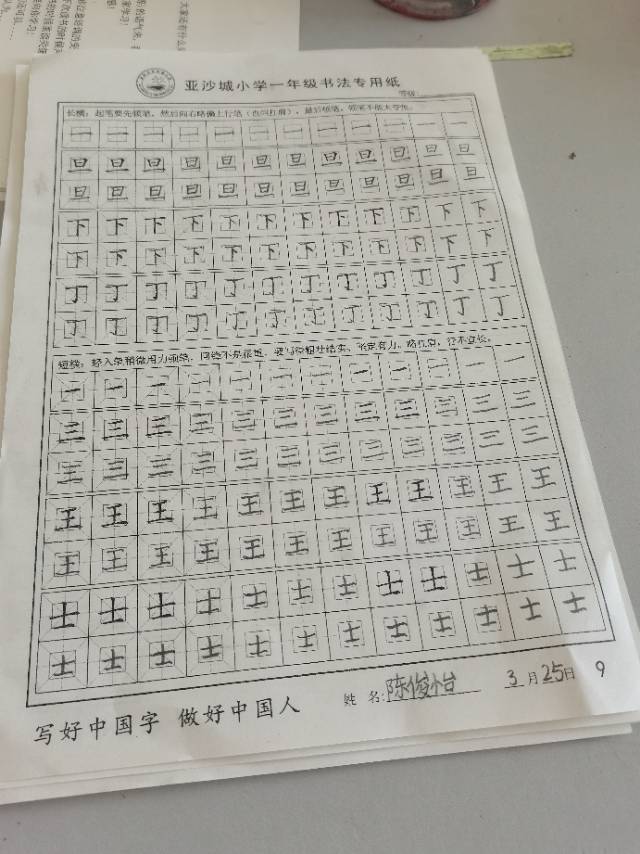 亚沙城小学一年级书法专用纸
等级:
长横：起笔要先顿笔，然后向右略微上行笔（也叫扛肩），最后顿笔，顿笔不能太夸张。
一 一 一 一 一 一 一 一 一 一 一 一
旦 旦 旦 旦 旦 旦 旦 旦 旦 旦 旦 旦
旦 旦 旦 旦 旦 旦 旦 旦 旦 旦 旦 旦
下 下 下 下 下 下 下 下 下 下 下 下
下 下 下 下 下 下 下 下 下 下 下 下
丁 丁 丁 丁 丁 丁 丁 丁 丁 丁 丁 丁
丁 丁 丁 丁 丁 丁 丁 丁 丁 丁 丁 丁
短横：轻入笔稍微用力顿笔，回锋不是很重，要写得粗壮结实、坚定有力，略扛肩，行不宜长。
一 一 一 一 一 一 一 一 一 一 一 一
三 三 三 三 三 三 三 三 三 三 三 三
三 三 三 三 三 三 三 三 三 三 三 三
王 王 王 王 王 王 王 王 王 王 王 王
王 王 王 王 王 王 王 王 王 王 王 王
士 士 士 士 士 士 士 士 士 士 士 士
士 士 士 士 士 士 士 士 士 士 士 士
写好中国字 做好中国人 姓 名: 陈俊 3 月 25 日 9